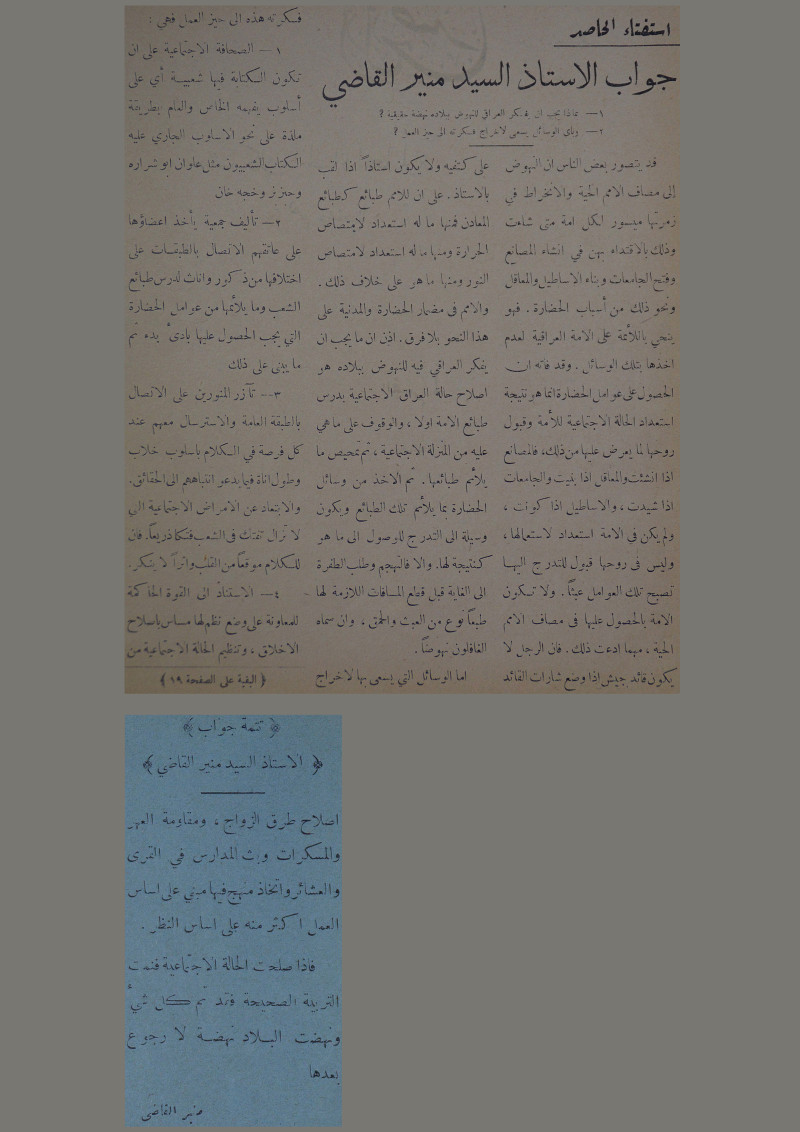 استفتاء الحاصد
جواب الاستاذ السيد منير القاضي
١— بماذا يجب ان يفتكر العراقي للنهوض ببلاده نهضة حقيقية ؟
٢— وبأي الوسائل يسعى لاخراج فكرته الى حيز العمل ؟
قد يتصور بعض الناس ان النهوض
إلى مصاف الامم الحية والانخراط في
زمرتها ميسور لكل امة متى شاءت
وذلك بالاقتداء بهن في انشاء المصانع
وفتح الجامعات وبناء الاساطيل والمعاقل
ونحو ذلك من أسباب الحضارة . فهو
ينحي باللأئمة على الامة العراقية لعدم
اخذها بتلك الوسائل . وقد فاته ان
الحصول على عوامل الحضارة انما هو نتيجة
استعداد الحالة الاجتماعية للأمة وقبول
روحها لما يعرض عليها من ذلك، فالمصانع
اذا انشئت والمعاقل اذا بنيت والجامعات
اذا شيدت ، والاساطيل اذا كونت ،
ولم يكن في الامة استعداد لاستعمالها ،
وليس في روحها قبول للتدرج اليها
تصبح تلك العوامل عبثاً . ولا تكون
الامة بالحصول عليها في مصاف الامم
الحية ، مهما ادعت ذلك . فان الرجل لا
يكون قائد جيش اذا وضع شارات القائد
على كتفيه ولا يكون استاذاً اذا لقب
بالاستاذ . على ان للامم طبائع كطبائع
المعادن فمنها ما له استعداد لامتصاص
الحرارة ومنها ما له استعداد لامتصاص
النور ومنها ما هو على خلاف ذلك .
والامم في مضمار الحضارة والمدنية على
هذا النحو بلا فرق . اذن ان ما يجب ان
يفكر العراقي فيه للنهوض ببلاده هو
اصلاح حالة العراق الاجتماعية بدرس
طبائع الامة اولا ، والوقوف على ما هي
عليه من المنزلة الاجتماعية ، ثم تمحيص ما
يلأئم طبائعها . ثم الاخذ من وسائل
الحضارة بما يلأئم تلك الطبائع ويكون
وسيلة الى التدرج للوصول الى ما هو
كنتيجة لها. والا فالتهجم وطلب الطفرة
الى الغاية قبل قطع المسافات اللازمة لها
طبعاً نوع من العبث والحمق ، وان سماه
الغافلون نهوضاً .
اما الوسائل التي يسعى بها لاخراج
فكرته هذه الى حيز العمل فهي :
١— الصحافة الاجتماعية على ان
تكون الكتابة فيها شعبية أي على
أسلوب يفهمه الخاص والعام بطريقة
ملذة على نحو الاسلوب الجاري عليه
الكتاب الشعبيون مثل علوان ابو شراره
وحبزبز وخجه خان
٢— تأليف جمعية يأخذ اعضاؤها
على عاتقهم الاتصال بالطبقات على
اختلافها من ذكور واناث لدرس طبائع
الشعب وما يلأئمها من عوامل الحضارة
التي يجب الحصول عليها بادئ بدء ثم
ما يبنى على ذلك
٣— تآزر المتنورين على الاتصال
بالطبقة العامة والاسترسال معهم عند
كل فرصة في الكلام باسلوب خلاب
وطول اناة فيما يدعو انتباههم الى الحقائق.
والابتعاد عن الامراض الاجتماعية التي
لا تزال تفتك في الشعب فتكا ذريعاً. فان
للكلام موقعاً من القلب واثراً لا ينكر.
٤— الاستناد الى القوة الحاكمة
للمعاونة على وضع نظم لها مساس باصلاح
الاخلاق ، وتنظيم الحالة الاجتماعية من
﴿ البقية على الصفحة ١٩ ﴾
﴿ تتمة جواب ﴾
﴿ الاستاذ السيد منير القاضي ﴾
اصلاح طرق الزواج ، ومقاومة العهر
والمسكرات وبث المدارس في القرى
والعشائر واتخاذ منهج فيها مبني على اساس
العمل اكثر منه على اساس النظر .
فاذا صلحت الحالة الاجتماعية فتمت
التربية الصحيحة فقد تم كل شيء
ونهضت البلاد نهضة لا رجوع
بعدها
منير القاضي